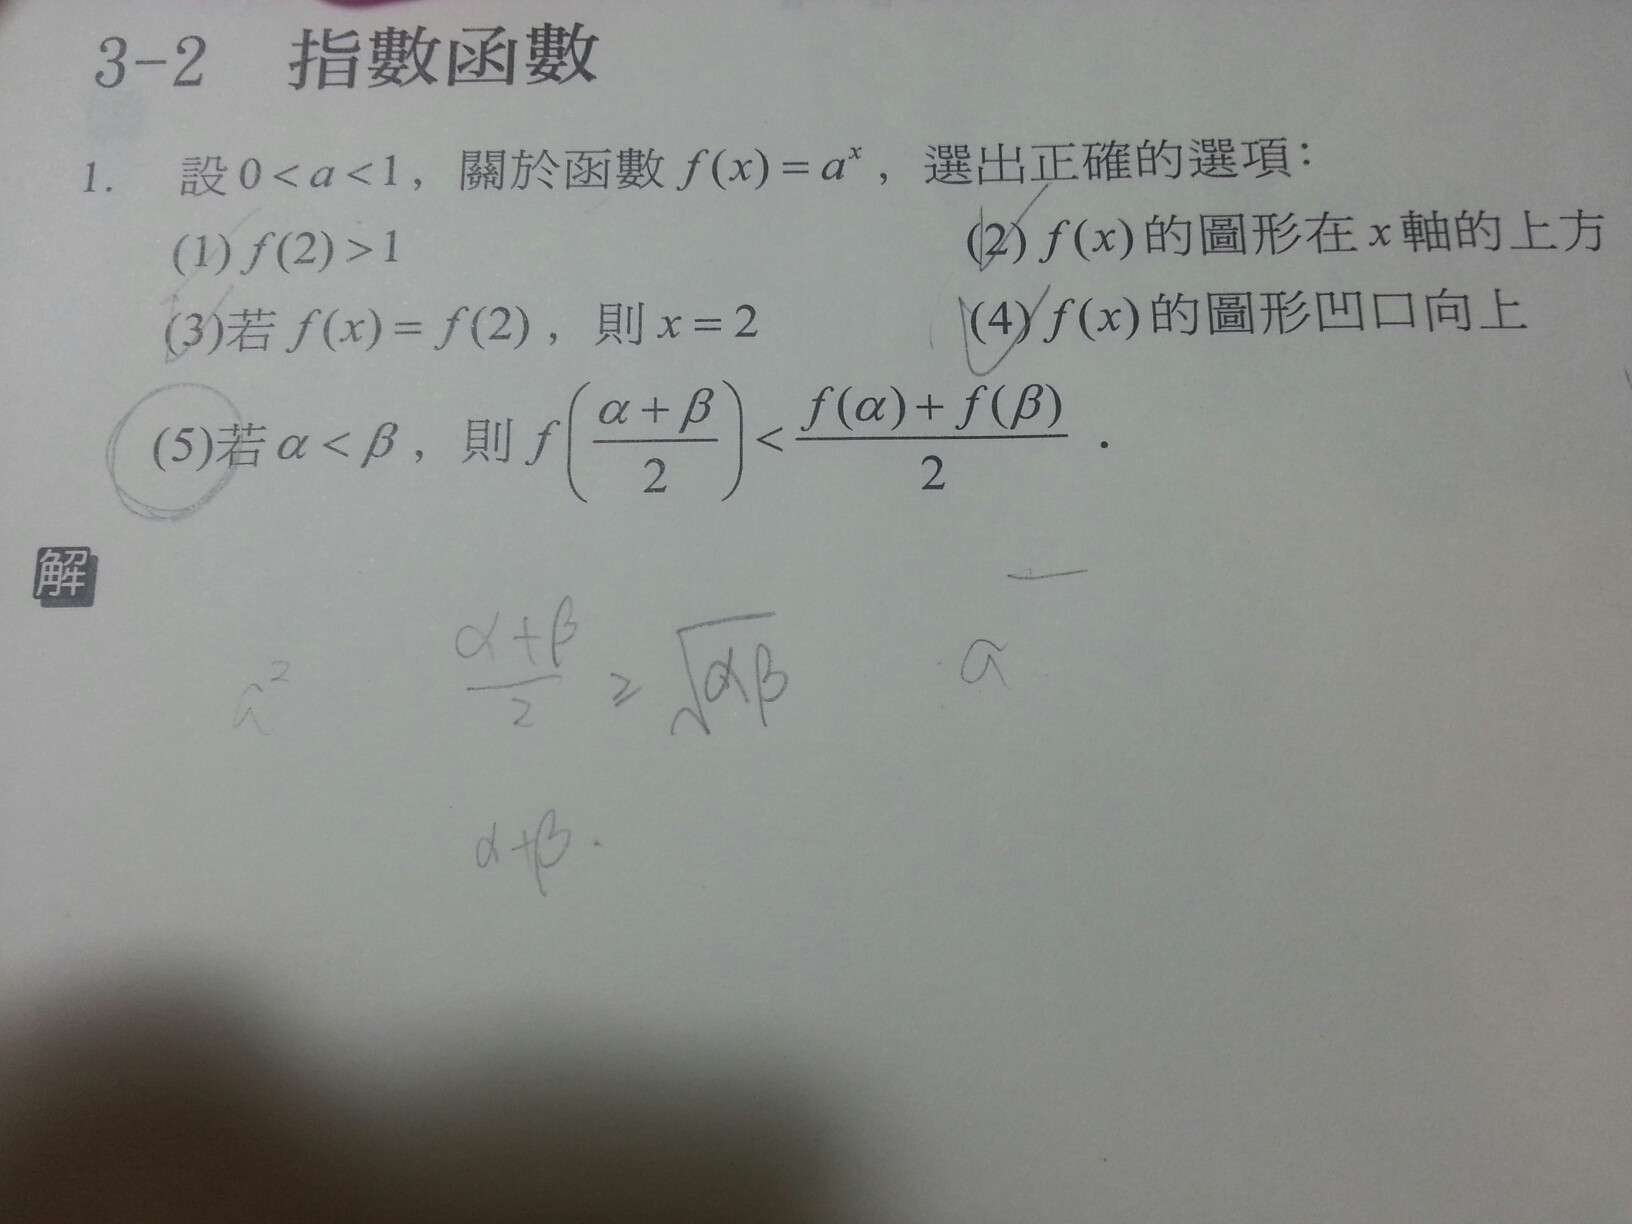 3-2 指數函數
1. 設0<a<1，關於函數 f(x)=aˣ，選出正確的選項：
(1) f(2)>1 (2) f(x)的圖形在x軸的上方
(3)若 f(x)=f(2)，則 x=2 (4) f(x)的圖形凹口向上
(5)若 α<β，則 f((α+β)/2)<(f(α)+f(β))/2．
解
a² (α+β)/2 ≥ √(αβ) a
α+β.